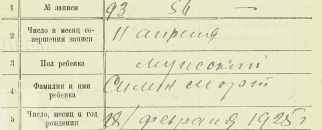 1 № записи 93 56 —
2 Число и месяц со-
вершения записи 11 апреля
3 Пол ребенка мужской
4 Фамилия и имя
ребенка Симин
5 Число, месяц и год
рождения 18/ февраля 1925 г